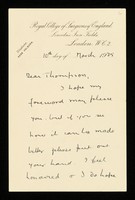 Royal College of Surgeons of England
Lincoln's Inn Fields,
London, W.C.2.
day of March
Dear Thompson,
I hope my
foreword may please
you but if you see
how it can be made
better please put out
your hand I feel
honoured & I do hope